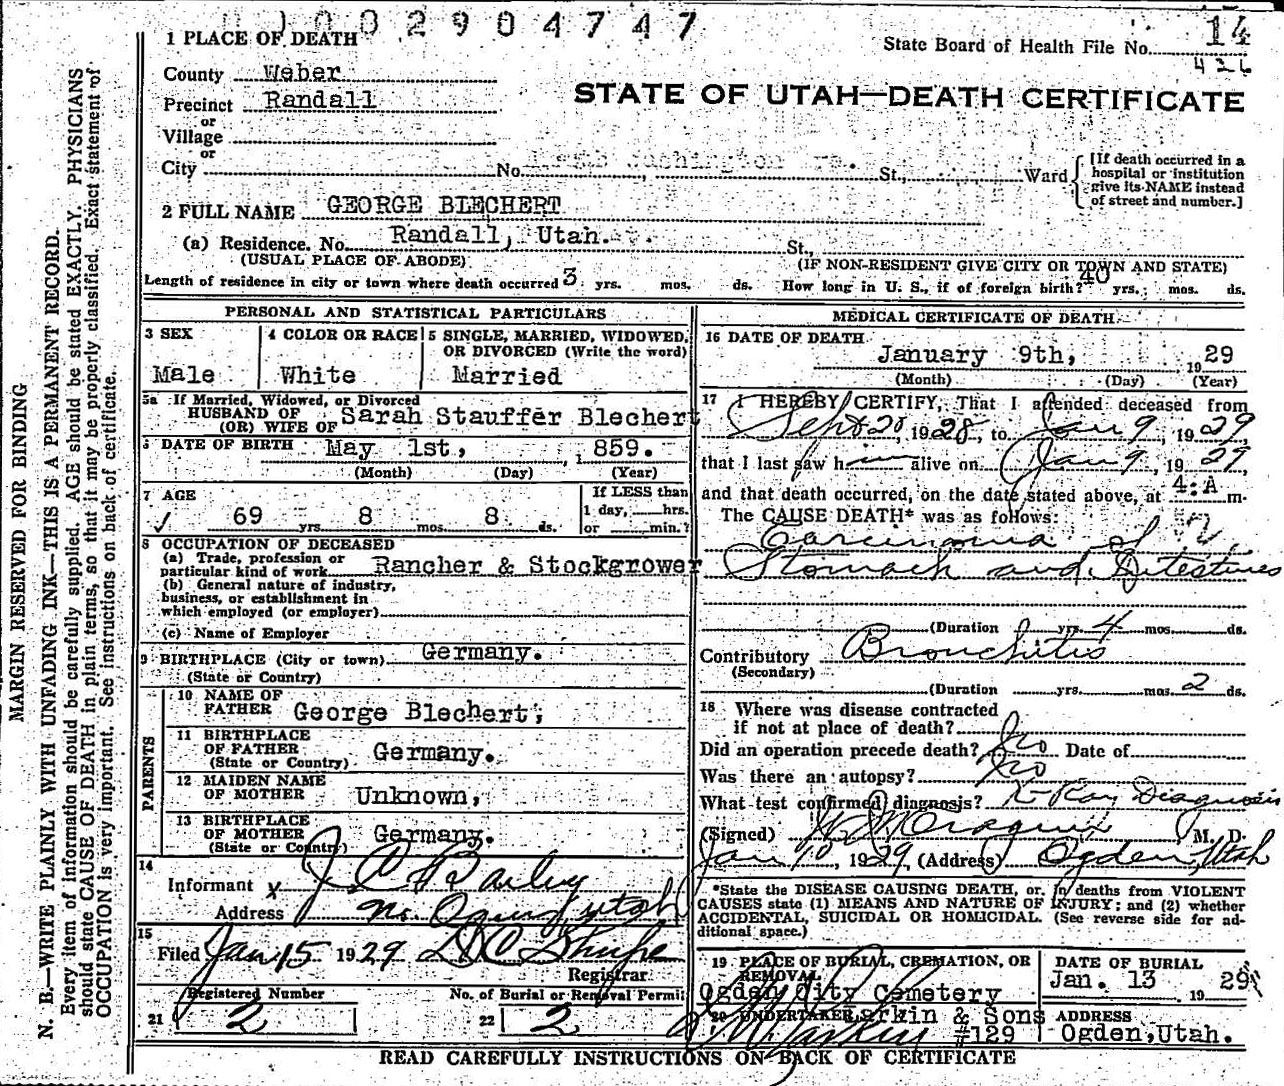 0 1 0 0 2 9 0 4 7 4 7
1 PLACE OF DEATH
State Board of Health File No. 14
426
County Weber
STATE OF UTAH—DEATH CERTIFICATE
Precinct Randall
or
Village
or
City No. Washington Ave. St., Ward
[If death occurred in a
hospital or institution
give its NAME instead
of street and number.]
2 FULL NAME GEORGE BLECHERT
(a) Residence. No. Randall, Utah. St.,
(USUAL PLACE OF ABODE) (IF NON-RESIDENT GIVE CITY OR TOWN AND STATE)
Length of residence in city or town where death occurred 3 yrs. mos. ds. How long in U. S., if of foreign birth? 40 yrs. mos. ds.
PERSONAL AND STATISTICAL PARTICULARS
3 SEX
Male
4 COLOR OR RACE
White
5 SINGLE, MARRIED, WIDOWED,
OR DIVORCED (Write the word)
Married
5a If Married, Widowed, or Divorced
HUSBAND OF
(OR) WIFE OF Sarah Stauffer Blechert
6 DATE OF BIRTH May 1st, 1859.
(Month) (Day) (Year)
7 AGE
69 yrs. 8 mos. 8 ds.
If LESS than
1 day, hrs.
or min.?
8 OCCUPATION OF DECEASED
(a) Trade, profession or
particular kind of work Rancher & Stockgrower
(b) General nature of industry,
business, or establishment in
which employed (or employer)
(c) Name of Employer
9 BIRTHPLACE (City or town) Germany.
(State or Country)
PARENTS
10 NAME OF
FATHER George Blechert,
11 BIRTHPLACE
OF FATHER Germany.
(State or Country)
12 MAIDEN NAME
OF MOTHER Unknown,
13 BIRTHPLACE
OF MOTHER Germany.
(State or Country)
14
Informant x J C Bailey
Address No. Ogden, Utah
15
Filed Jan 15 1929 D C Shupe
Registrar
Registered Number
21 2
No. of Burial or Removal Permit
22 2
MEDICAL CERTIFICATE OF DEATH
16 DATE OF DEATH
January 9th, 1929
(Month) (Day) (Year)
17 I HEREBY CERTIFY, That I attended deceased from
Sept 20, 1928, to Jan 9, 1929
that I last saw him alive on Jan 9, 1929
and that death occurred, on the date stated above, at 4:A m.
The CAUSE DEATH* was as follows:
Carcinoma of
Stomach and Intestines
(Duration yrs. 4 mos. ds.
Contributory Bronchitis
(Secondary)
(Duration yrs. mos. 2 ds.
18 Where was disease contracted
if not at place of death?
Did an operation precede death? No Date of
Was there an autopsy? No
What test confirmed diagnosis? X-Ray Diagnosis
(Signed) M. D.
Jan 10, 1929. (Address) Ogden, Utah
*State the DISEASE CAUSING DEATH, or, in deaths from VIOLENT
CAUSES state (1) MEANS AND NATURE OF INJURY; and (2) whether
ACCIDENTAL, SUICIDAL OR HOMICIDAL. (See reverse side for ad-
ditional space.)
19 PLACE OF BURIAL, CREMATION, OR
REMOVAL
Ogden City Cemetery
DATE OF BURIAL
Jan. 13 1929
20 UNDERTAKER Larkin & Sons
#129
ADDRESS
Ogden, Utah.
READ CAREFULLY INSTRUCTIONS ON BACK OF CERTIFICATE
MARGIN RESERVED FOR BINDING
N. B.—WRITE PLAINLY WITH UNFADING INK—THIS IS A PERMANENT RECORD.
Every item of information should be carefully supplied. AGE should be stated EXACTLY. PHYSICIANS
should state CAUSE OF DEATH in plain terms, so that it may be properly classified. Exact statement of
OCCUPATION is very important. See instructions on back of certificate.